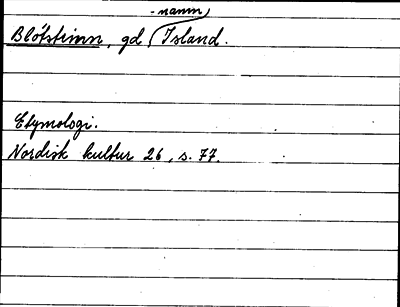 -namn
Blótstinn, gd Island.
Etymologi.
Nordisk kultur 26, s. 77.